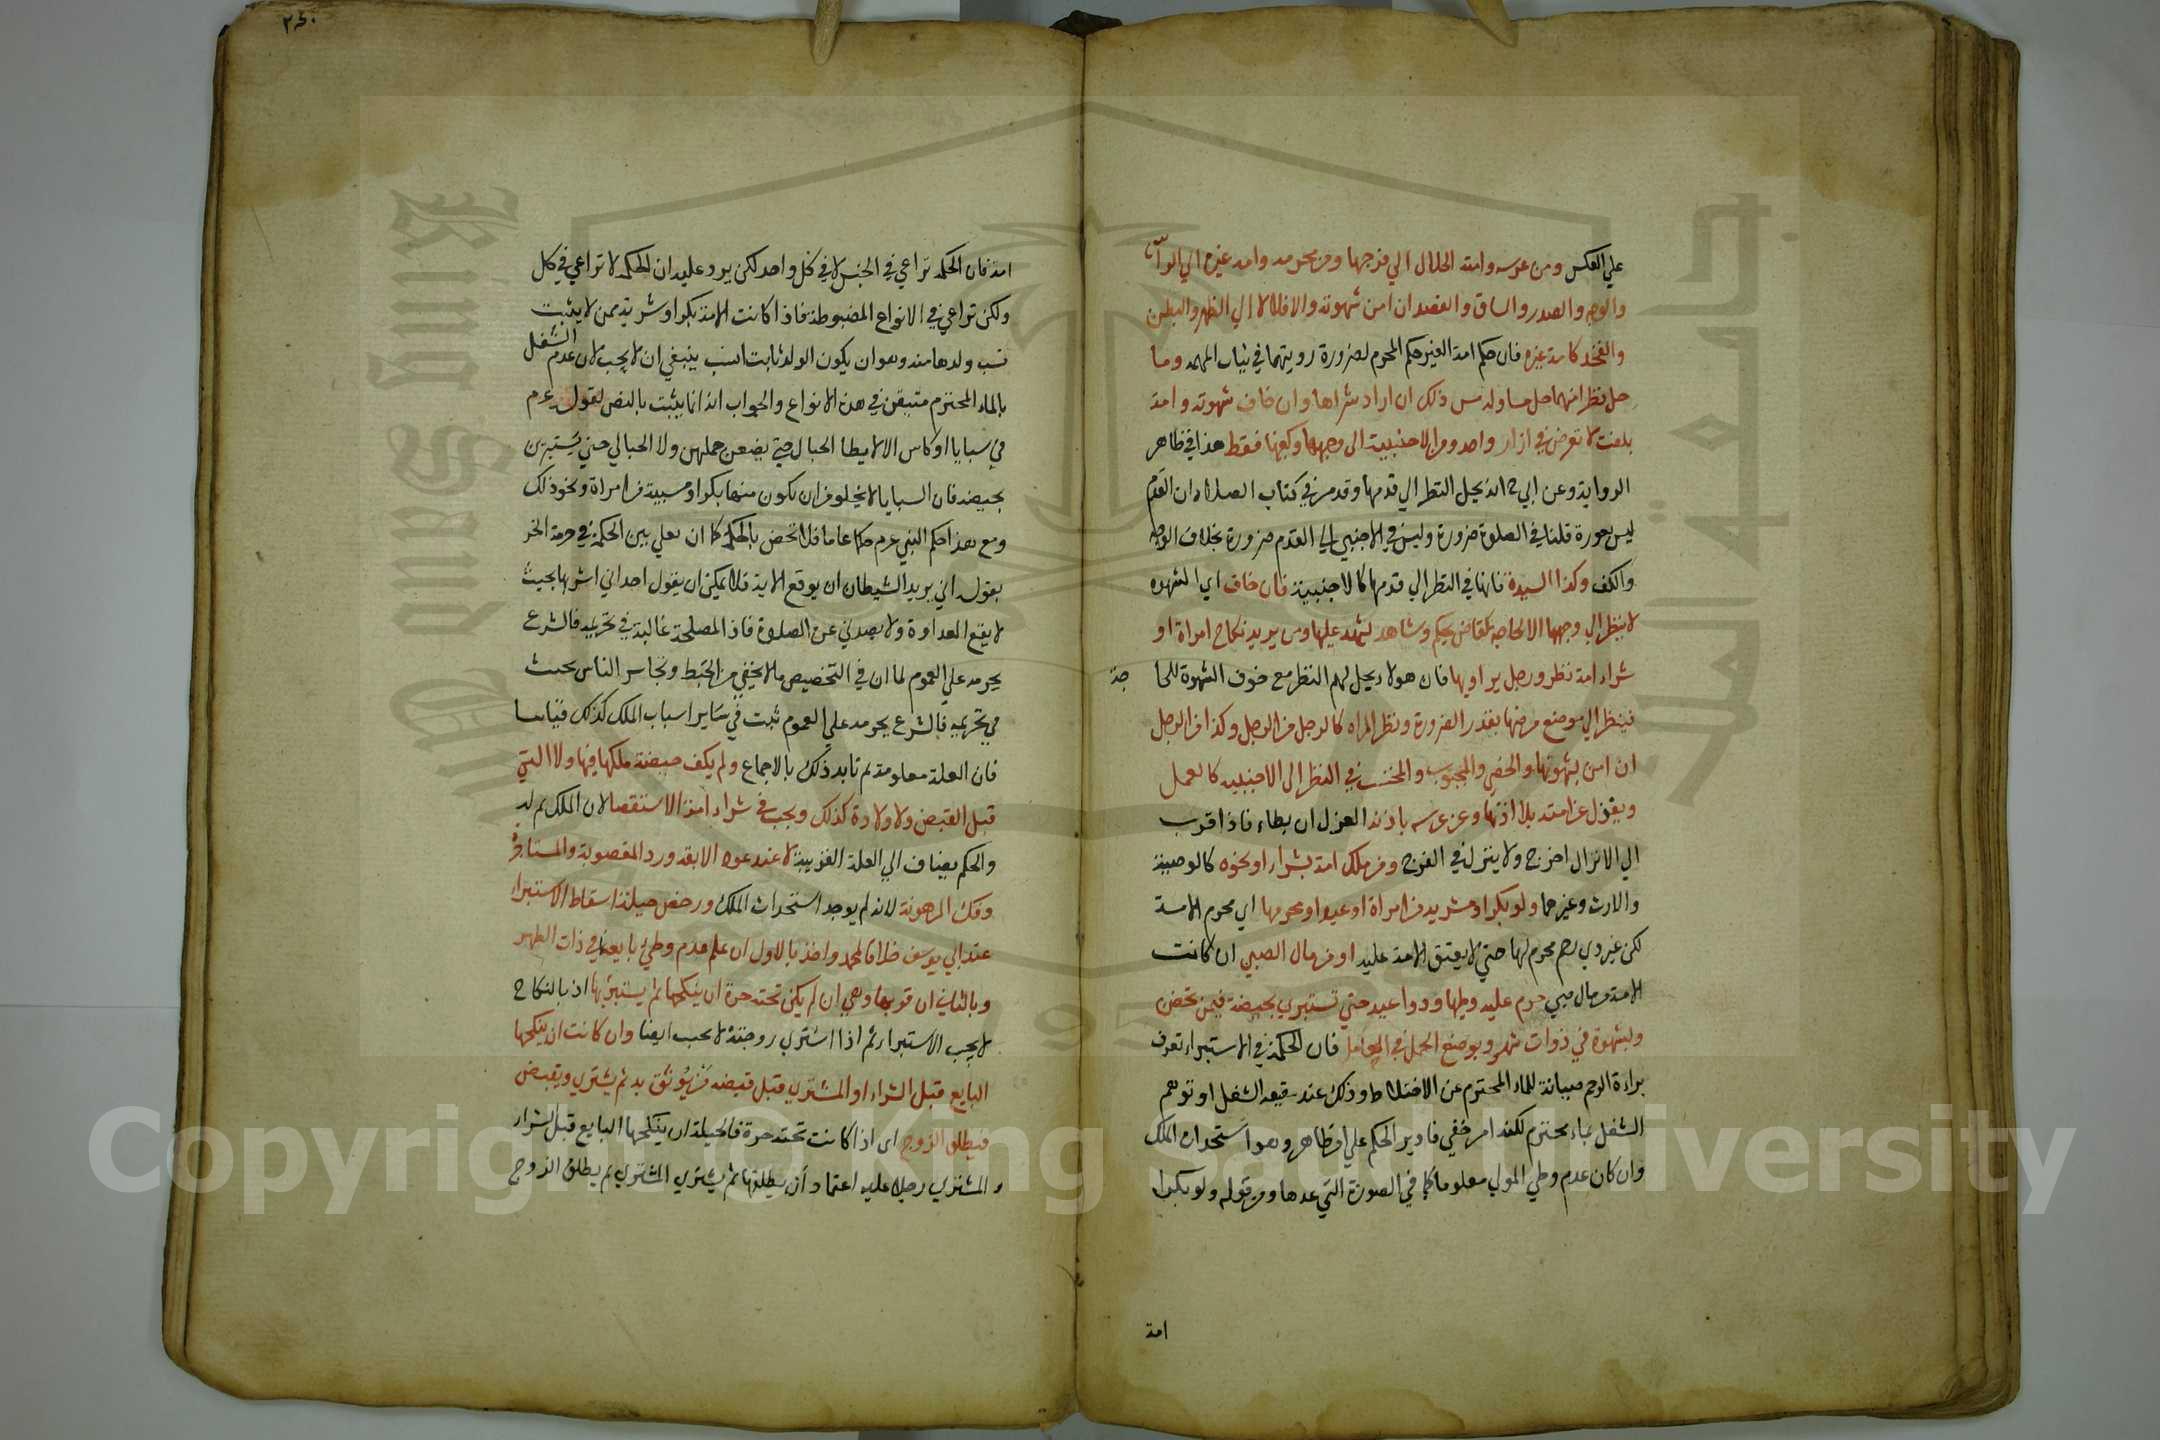 علي العكس ومن عرسه وامته الحلال الي فرجها ومن محرمه وامه غيره الي الراس
والوجه والصدر والساق والعضد ان امن شهوته والا فلا لا الي الظهر والبطن
والفخذ كامة غيره فان حكم امة الغير حكم المحرم لضرورة رويتها في ثياب المهنة وما
حل نظرا منهما حل مسا وله مس ذلك ان اراد شراها وان خاف شهوته وامة
بلغت لا تعرض في ازار واحد ومن الاجنبية الي وجهها وكفيها فقط هذا في ظاهر
الرواية وعن ابي ح انه يحل النظر الي قدمها وقد مر في كتاب الصلاة ان القدم
ليس بعورة قلنا في الصلوة ضرورة وليس في الاجنبي الي القدم ضرورة بخلاف الوجه
والكف وكذا السيدة فانها في النظر الي قدمها كالاجنبية فان خاف اي الشهوة
لا ينظر الي وجهها الا لحاجة كقاض يحكم وشاهد يشهد عليها ومن يريد نكاح امراة او
شراء امة نظر ورجل يداويها فان هولاء يحل لهم النظر مع خوف الشهوة للحا
جة
فينظر الي موضع مرضها بقدر الضرورة ونظر المراه كالرجل من الرجل وكذا من الرجل
ان امن شهوتها والخصي والمجبوب والمخنث في النظر الي الاجنبية كالفحل
ويعزل عن امته بلا اذنها وعن عرسه باذنه العزل ان يطاء فاذا قرب
الي الانزال اخرج ولا ينزل في الفرج ومن ملك امة بشراء او نحوه كالوصية
والارث وغيرهما ولو بكرا او مشرية من امراة او عبد او محرمها اي محرم الامة
لكن غير ذي رحم محرم لها حتي لا يعتق الامة عليه او من مال الصبي ان كانت
الامة من مال صبي حرم عليه وطيها ودواعيه حتي تستبري بحيضة فيمن تحيض
وبشهر في ذوات شهر وبوضع الحمل في الحامل فان الحكمة في الاستبراء تعرف
براءة الرحم صيانة للماء المحترم عن الاختلاط وذلك عند حقيقة الشغل او توهم
الشغل بماء محترم لكنه امر خفي فادير الحكم علي امر ظاهر وهو استحداث الملك
وان كان عدم وطي المولي معلوما كما في الصورة التي عدها وهو قوله ولو بكرا
امة
٢٤٠
امة فان الحكمة تراعي في الجنس لا في كل واحد لكن يرد عليه ان الحكمة لا تراعي في كل
ولكن تراعي في الانواع المضبوطة فاذا كانت الامة بكرا او شرية ممن لا يثبت
نسب ولدها منه وهو ان يكون الولد ثابت النسب ينبغي ان لا يجب لان عدم الشغل
بالماء المحترم متيقن في هذه الانواع والجواب انه انما يثبت بالنص لقوله عم
في سبايا اوطاس الا لا يطا الحبالي حتي يضعن حملهن ولا الحيالي حتي يستبرين
بحيضة فان السبايا لا يخلو من ان يكون منها بكرا او مسبية من امراة ونحو ذلك
ومع هذا حكم النبي عم حكما عاما فلا تخص بالحكمة كما ان تعلي بين الحكمة في حرمة الخمر
بقوله اني يريد الشيطان ان يوقع الاية فلا يمكن ان يقول احد اني اشربها بحيث
لا يقع العداوة ولا يصدني عن الصلوة فاذ المصلحة غالبة في تحريمه فالشرع
يحرمه علي العموم لما ان في التخصيص ما لا يخفي من الخبط وتجاسر الناس بحيث
في تحريمه فالشرع يحرمه علي العموم ثبت في ساير اسباب الملك كذلك قياسا
فان العلة معلومة ثم تايد ذلك بالاجماع ولم يكف حيضة ملكها فيها ولا التي
قبل القبض ولا ولادة كذلك ويجب في شراء امة الا شقصا لان الملك تم له
والحكم يضاف الي العلة القريبة لا عند عود الابقة ورد المغصوبة والمستاجرة
وفك المرهونة لانه لم يوجد استحداث الملك ورخص حيلة اسقاط الاستبراء
عند ابي يوسف خلافا لمحمد واخذ بالاول ان علم عدم وطي بايعها في ذات الطهر
وبالثاني ان قربها وهي ان لم يكن تحته حرة ان ينكحها ثم يشتريها اذ بالنكاح
لا يجب الاستبراء ثم اذا اشتري زوجته لا يجب ايضا وان كانت ان ينكحها
البايع قبل الشراء او المشتري قبل قبضه من يوثق به ثم يشتري ويقبض
فيطلق الزوج اي اذا كانت تحته حرة فالحيلة ان ينكحها البايع قبل شراء
المشتري رجلا عليه اعتماد ان يطلقها ثم يشتري المشتري ثم يطلق الزوج
Copyright © King Saud University